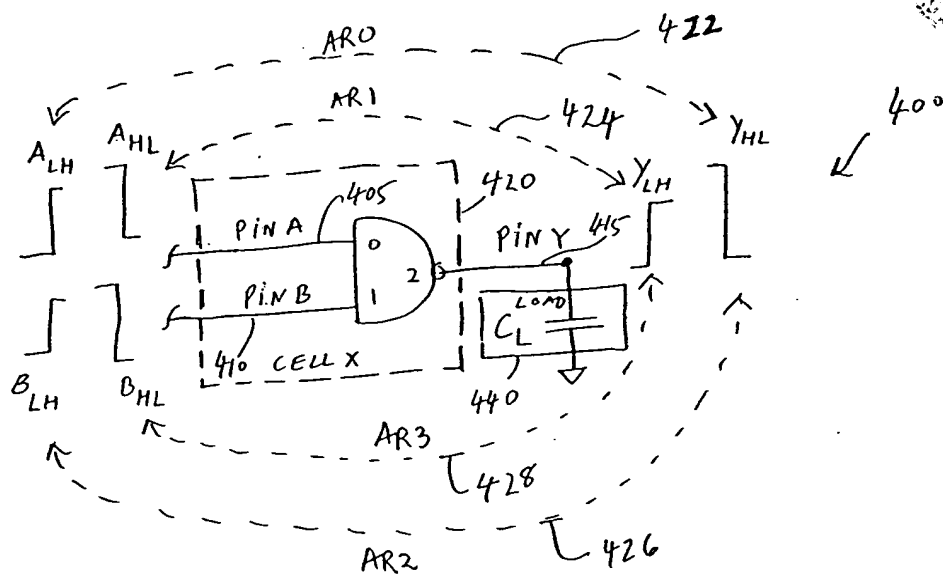 AR0
422
AR1
424
400
A_LH
A_HL
Y_LH
Y_HL
420
405
PIN A
0
PIN Y
415
2
PIN B
1
LOAD
C_L
410
CELL X
440
B_LH
B_HL
AR3
428
AR2
426